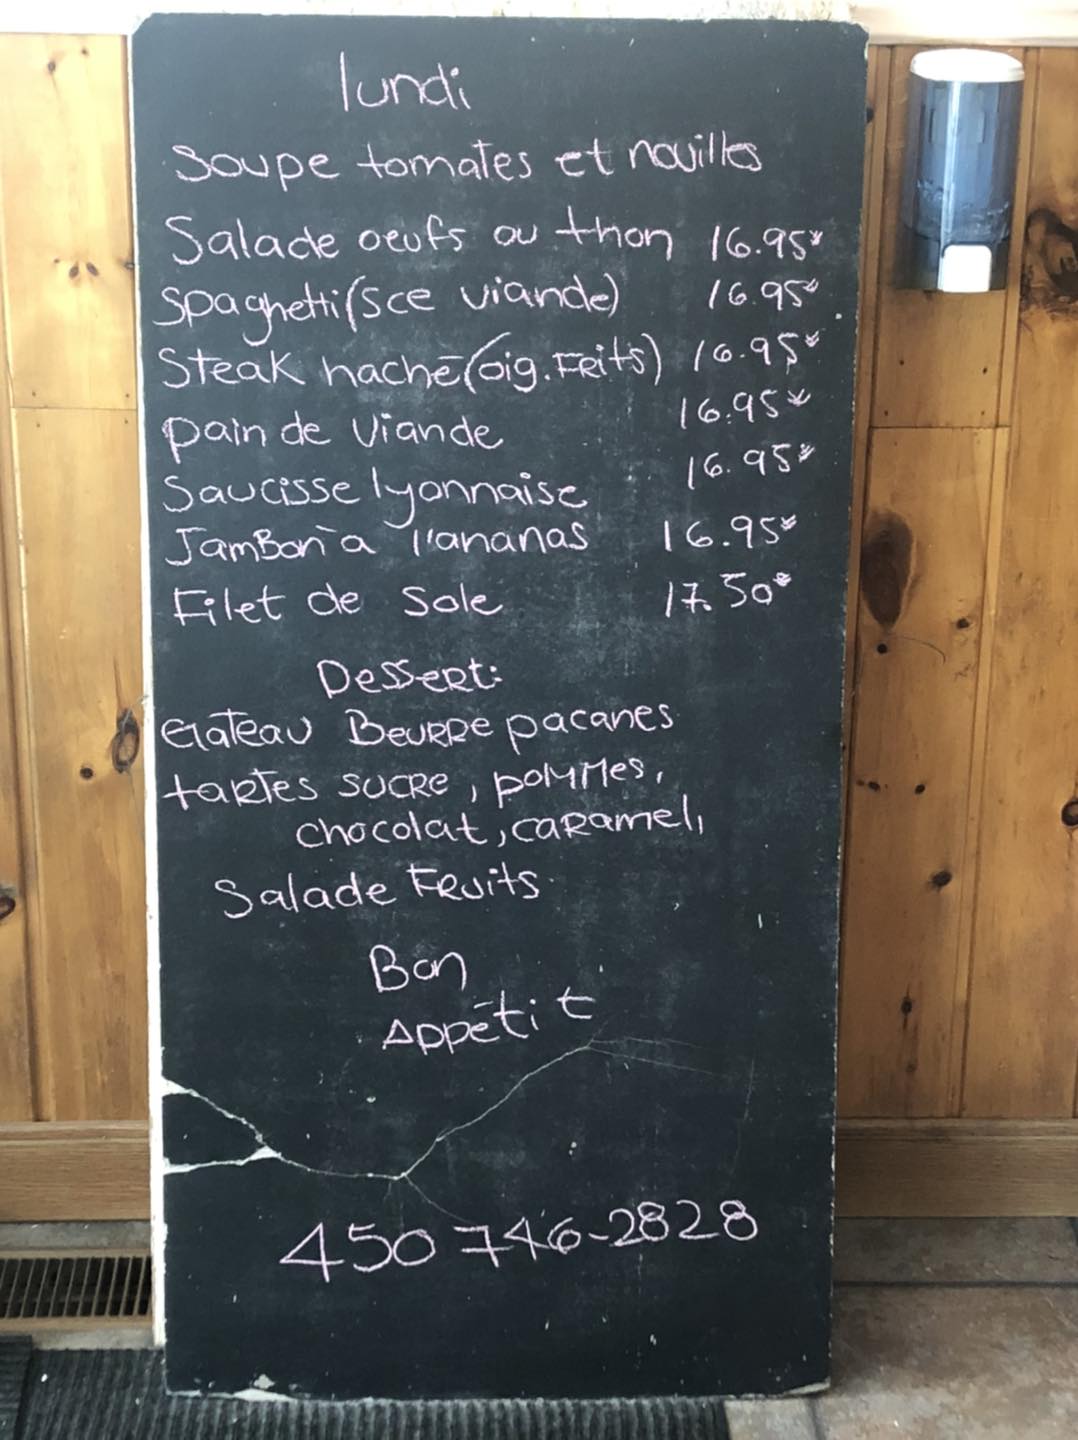 lundi
Soupe tomates et nouilles
Salade oeufs ou thon 16.95*
Spaghetti (sce viande) 16.95*
Steak haché (oig. Frits) 16.95*
pain de viande 16.95*
Saucisse lyonnaise 16.95*
Jambon à l'ananas 16.95*
Filet de sole 17.50*
Dessert:
Gateau Beurre pacanes
tartes sucre, pommes,
chocolat, caramel,
Salade Fruits
Bon
Appétit
450 746-2828